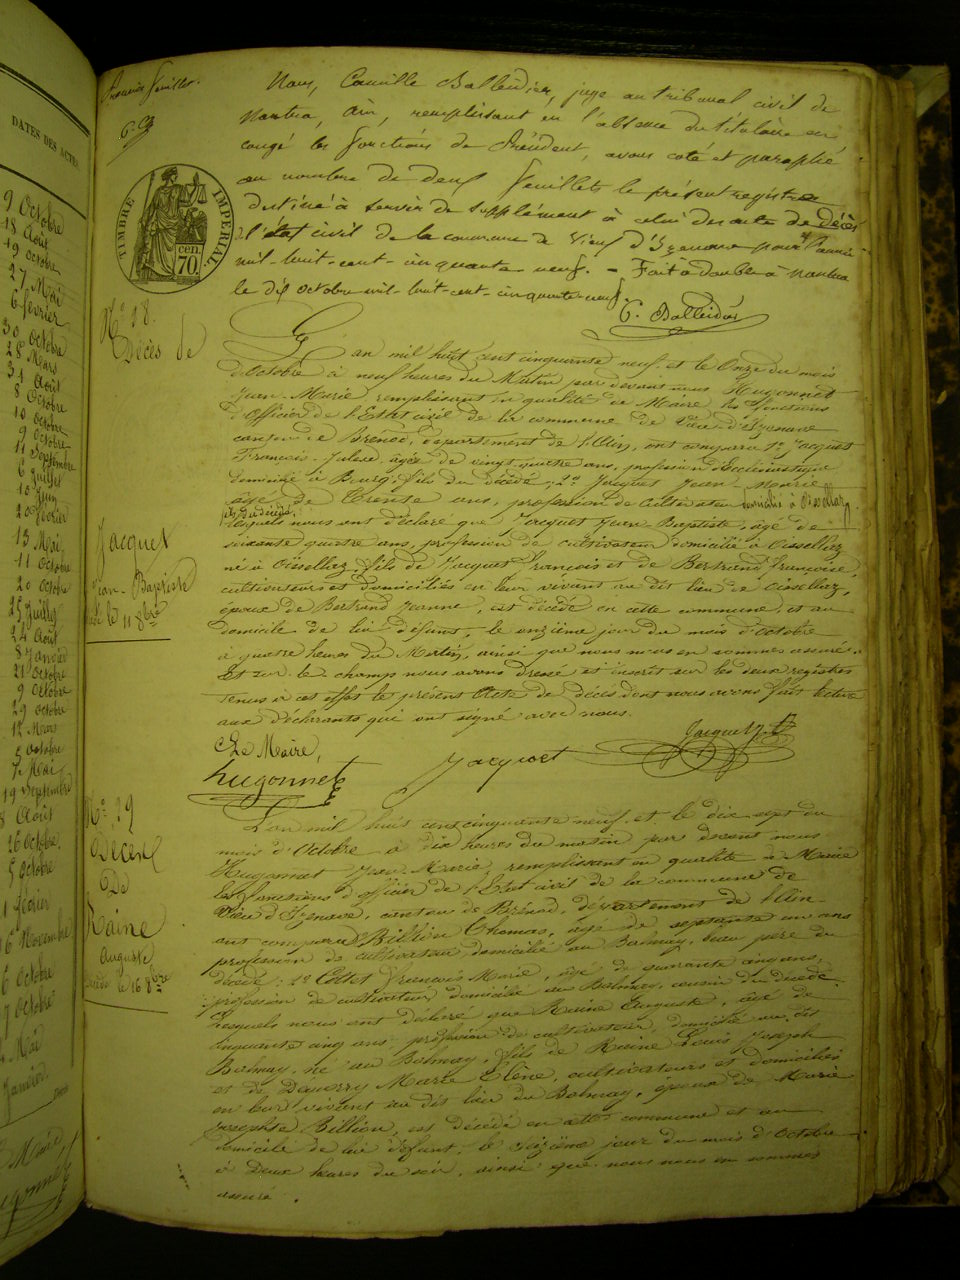 DATES DES ACTES
9 Octobre
18 Août
19 octobre
27 Mai
6 février
30 Octobre
28 Mars
31 Août
8 Octobre
10 octobre
9 Octobre
11 Septembre
6 Juillet
10 Juin
20 février
13 Mai
11 Octobre
20 octobre
25 Juillet
24 Août
8 Janvier
21 Octobre
9 Octobre
29 octobre
12 Mars
5 octobre
7 Mai
19 Septembre
8 Août
26 Octobre
5 Octobre
février
16 Novembre
6 Octobre
7 Octobre
Mai
Janvier
Maire,
Premier feuillet.
C. B
TIMBRE IMPÉRIAL
70 cen.
Nous, Camille Balleidier, juge au tribunal civil de
Nantua, Ain, remplissant en l'absence du titulaire en
congé les fonctions de Président, avons coté et paraphé
au nombre de deux feuillets le présent registre
destiné à servir de supplément à celui des actes de décès
de l'état civil de la commune de Vieu d'Izenave pour l'année
mil-huit-cent-cinquante-neuf. - Fait à double à Nantua
le dix octobre mil-huit-cent-cinquante-neuf.
C. Balleidier
N° 18.
Décès de
Jacquet
Jean-Baptiste
décédé le 11 8bre
L'an mil huit cent cinquante neuf et le Onze du mois
d'Octobre à neuf heures du Matin par devant nous Hugonnet
Jean-Marie, remplissant en qualité de Maire les fonctions
d'Officier de l'Etat civil de la commune de Vieu-d'Izenave
canton de Brénod, département de l'Ain, ont comparu 1° Jacquet
François-Julese âgé de vingt quatre ans, profession d'Ecclésiastique
domicilié à Bourg, fils du décédé; 2° Jacquet Jean-Marie
âgé de Trente ans, profession de cultivateur domicilié à Oisselliaz
fils du décédé,
lesquels nous ont déclaré que Jacquet Jean-Baptiste, âgé de
soixante quatre ans, profession de cultivateur domicilié à Oisselliaz
né à Oisselliaz, fils de Jacquet François et de Bertrand Françoise,
cultivateurs et domiciliés en leur vivant au dit lieu de Oisselliaz,
époux de Bertrand Jeanne, est décédé en cette commune, et au
domicile de lui défunt, le onzième jour du mois d'octobre
à quatre heures du Matin, ainsi que nous nous en sommes assuré.
Et sur le champ nous avons dressé et inscrit sur les deux registres
tenus à cet effet le présent Acte de décès dont nous avons fait lecture
aux déclarants qui ont signé avec nous.
Le Maire,
Hugonnet
Jacquet
Jacquet
N° 19
Décès
De
Raine
Auguste
décédé le 16 8bre
L'an mil huit cent cinquante neuf et le dix sept du
mois d'Octobre à dix heures du matin par devant nous
Hugonnet Jean Marie, remplissant en qualité de Maire
les fonctions d'officier de l'Etat civil de la commune de
Vieu d'Izenave, canton de Brénod, département de l'Ain
ont comparu Billion Thomas, âgé de septante un ans
profession de cultivateur domicilié au Balmay, beau père du
décédé; 2° Cottet François Marie, âgé de quarante cinq ans,
profession de cultivateur domicilié au Balmay, cousin du décédé
lesquels nous ont déclaré que Raine Auguste, âgé de
cinquante cinq ans profession de cultivateur, domicilié au dit
Balmay, né au Balmay, fils de Raine Louis Joseph
et de Marie Elène, cultivateurs et domiciliés
en leur vivant au dit lieu du Balmay, époux de Marie
Josephte Billion, est décédé en cette commune et au
domicile de lui défunt, le seizième jour du mois d'Octobre
à deux heures du soir, ainsi que nous nous en sommes
assuré.